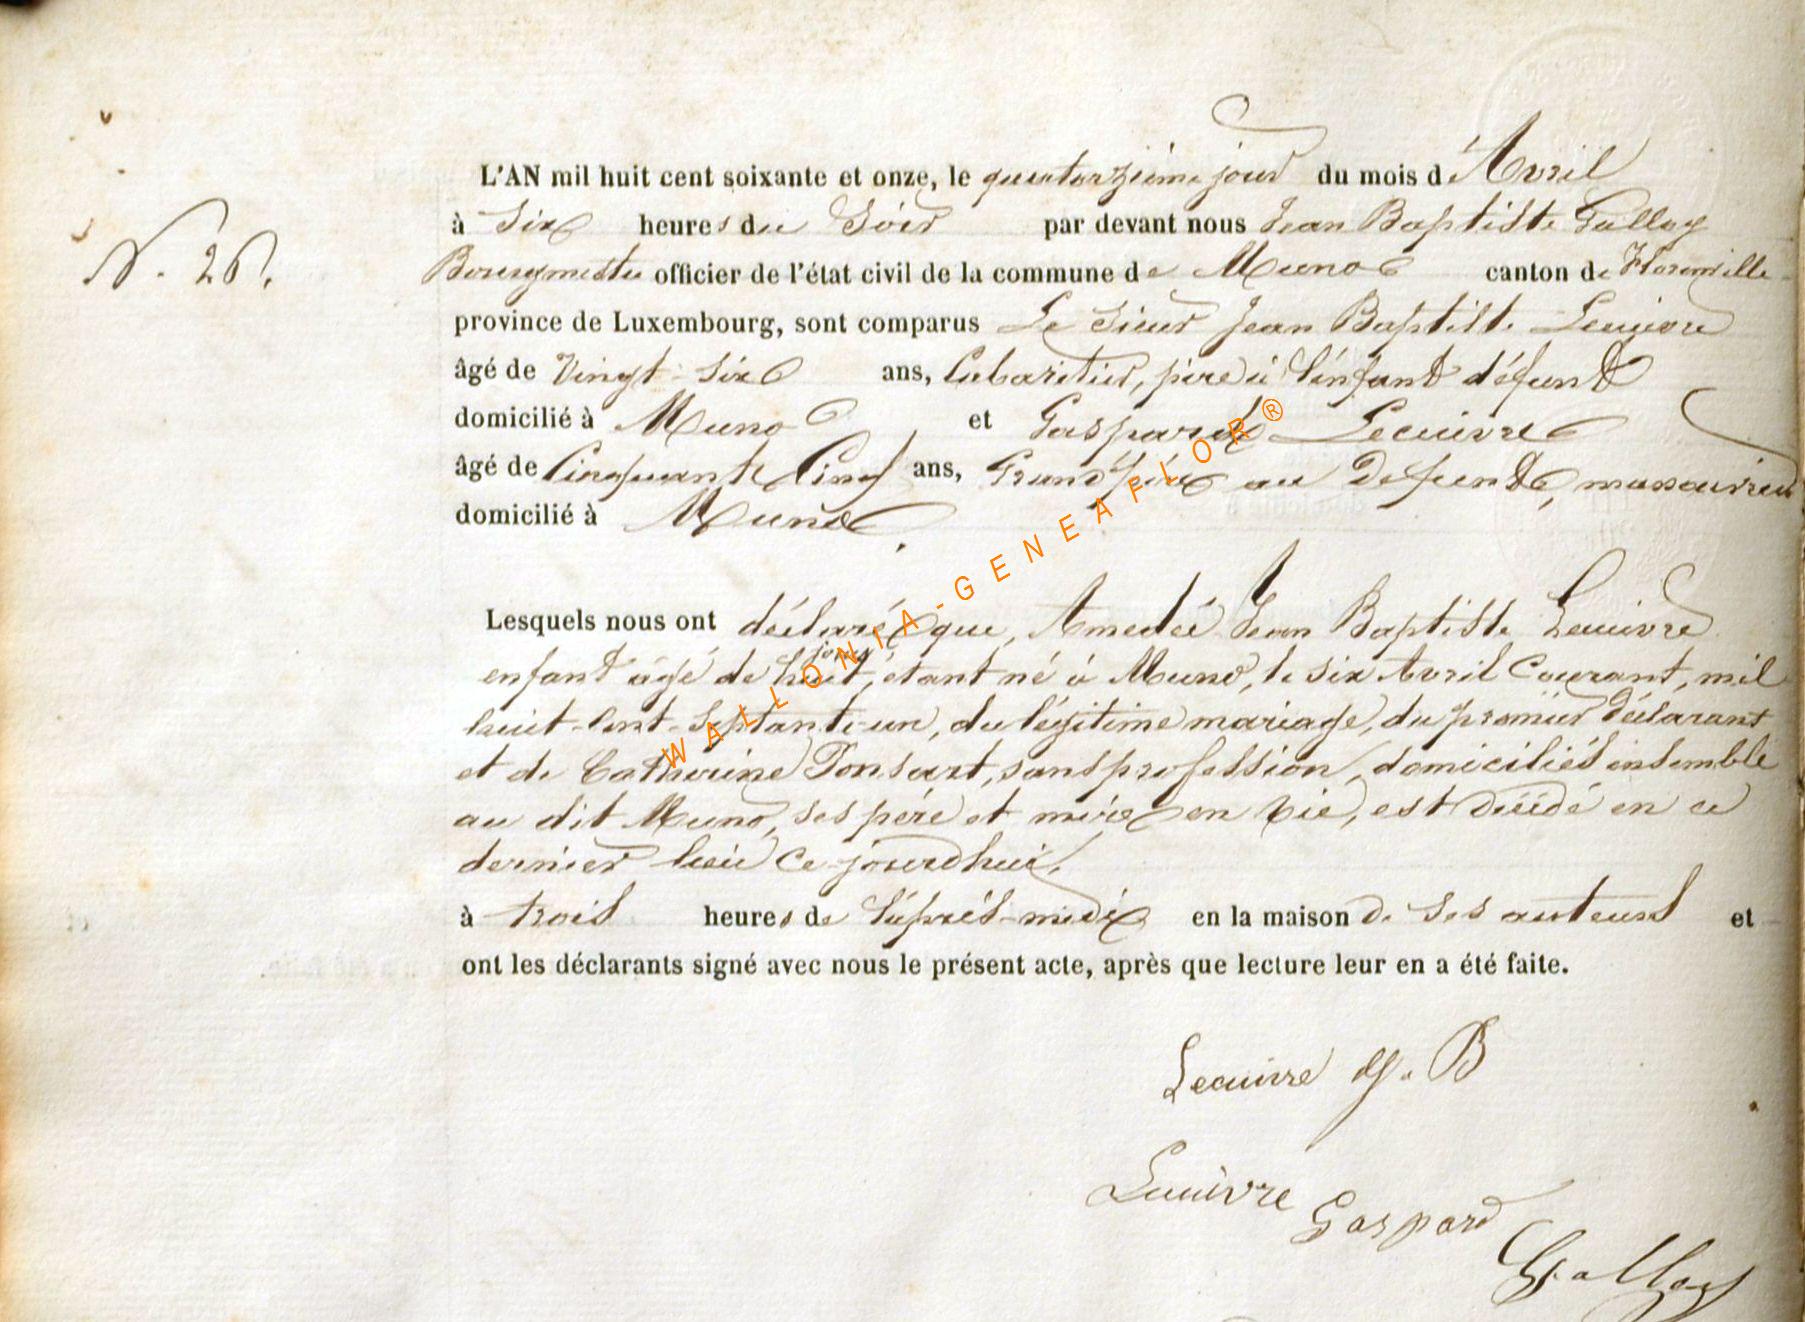 N. 26.
L'AN mil huit cent soixante et onze, le quatorzième jour du mois d'Avril
à Six heures du Soir par devant nous Jean Baptiste Galloy
Bourgmestre officier de l'état civil de la commune de Muno canton de Florenville
province de Luxembourg, sont comparus Le Sieur Jean Baptiste Lecuivre
âgé de Vingt-Six ans, Cabaretier, père à l'enfant défunt
domicilié à Muno et Gaspard Lecuivre
âgé de Cinquante Cinq ans, Grand père au Défunt, manouvrier
domicilié à Muno
Lesquels nous ont déclaré que, Amedée Jean Baptiste Lecuivre
jours
enfant âgé de huit, étant né à Muno, le six Avril Courant, mil
huit-Cent-Septante-un, du légitime mariage, du premier Déclarant
et de Catherine Ponsart, sans profession, domiciliés ensemble
au dit Muno, ses père et mère en Vie, est Décédé en ce
dernier lieu ce jourdhui,
à trois heures de l'après-midi en la maison de ses auteurs et
ont les déclarants signé avec nous le présent acte, après que lecture leur en a été faite.
Lecuivre J. B
Lecuivre Gaspard
Galloy
WALLONIA-GENEAFLOR®